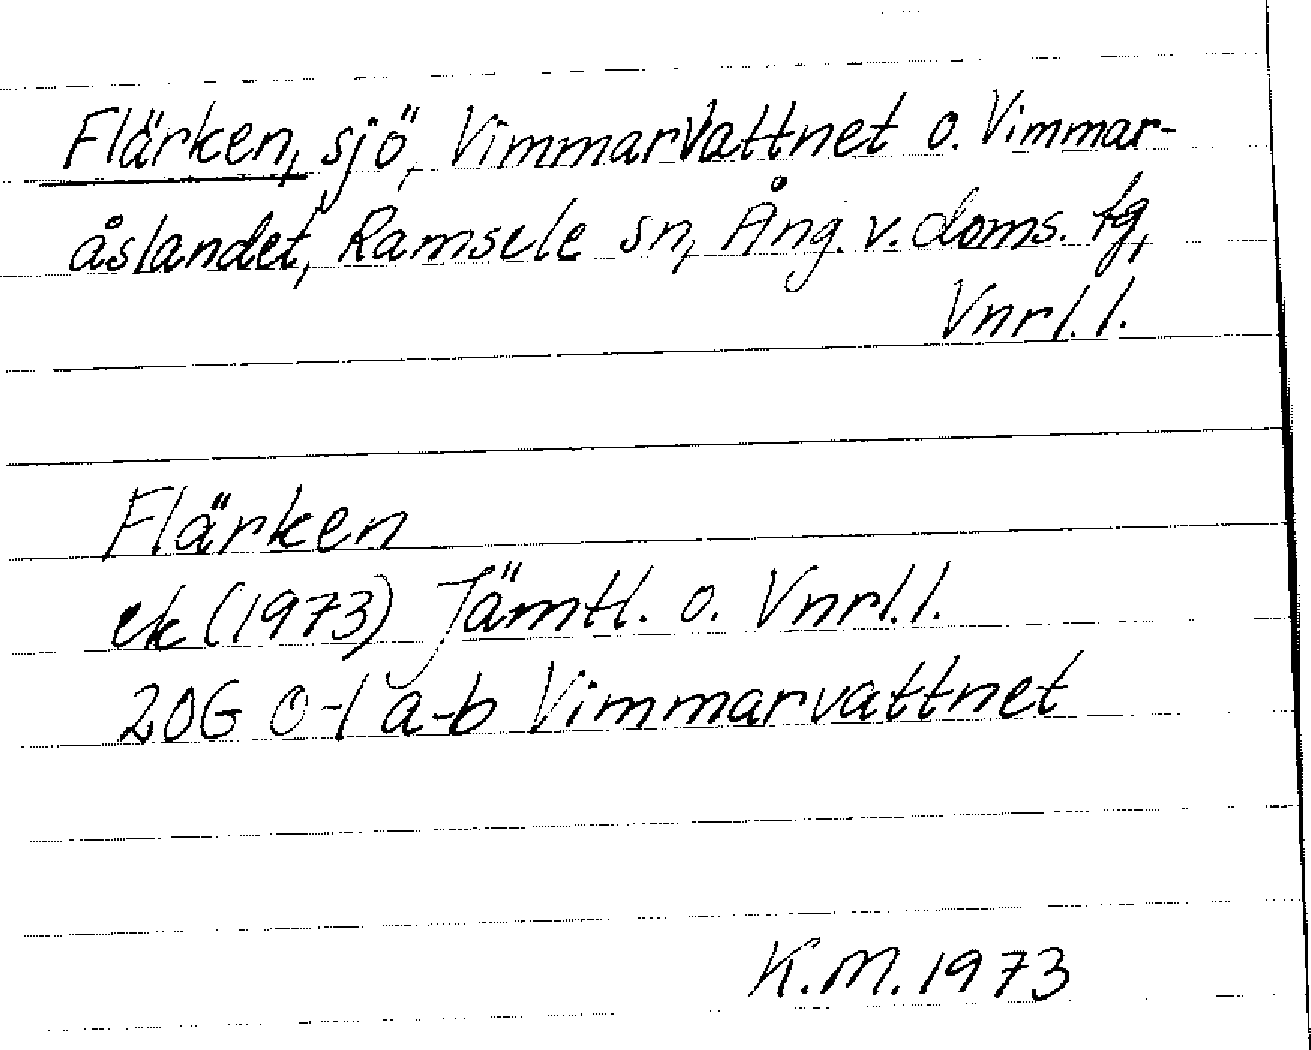 Flärken, sjö, Vimmarvattnet o. Vimmar-
åslandet, Ramsele sn, Ång. v. doms. tg,
Vnrl. l.
Flärken
ek (1973) Jämtl. o. Vnrl. l.
20G 0-1 a-b Vimmarvattnet
K.M. 1973